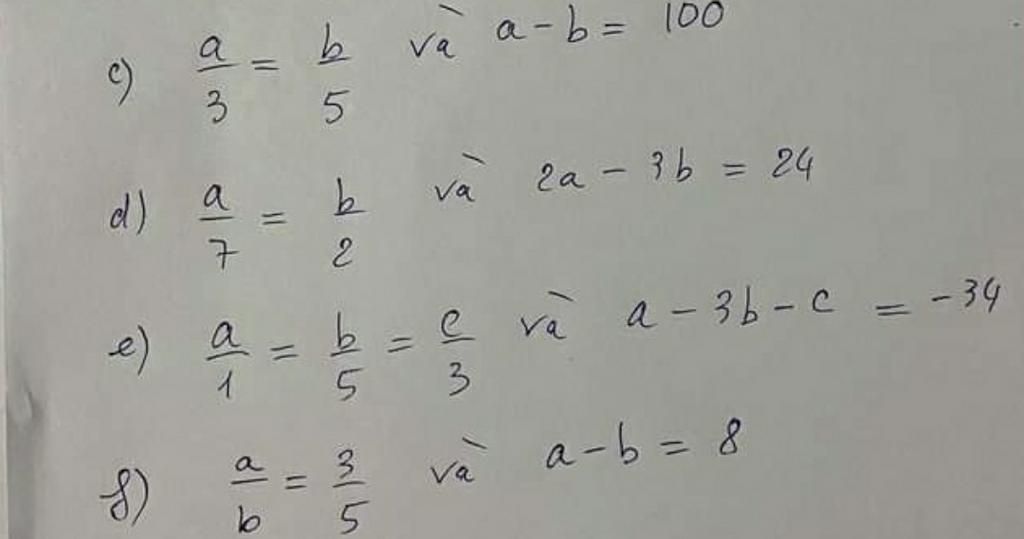 c) a/3 = b/5 và a - b = 100
d) a/7 = b/2 và 2a - 3b = 24
e) a/1 = b/5 = c/3 và a - 3b - c = -34
f) a/b = 3/5 và a - b = 8